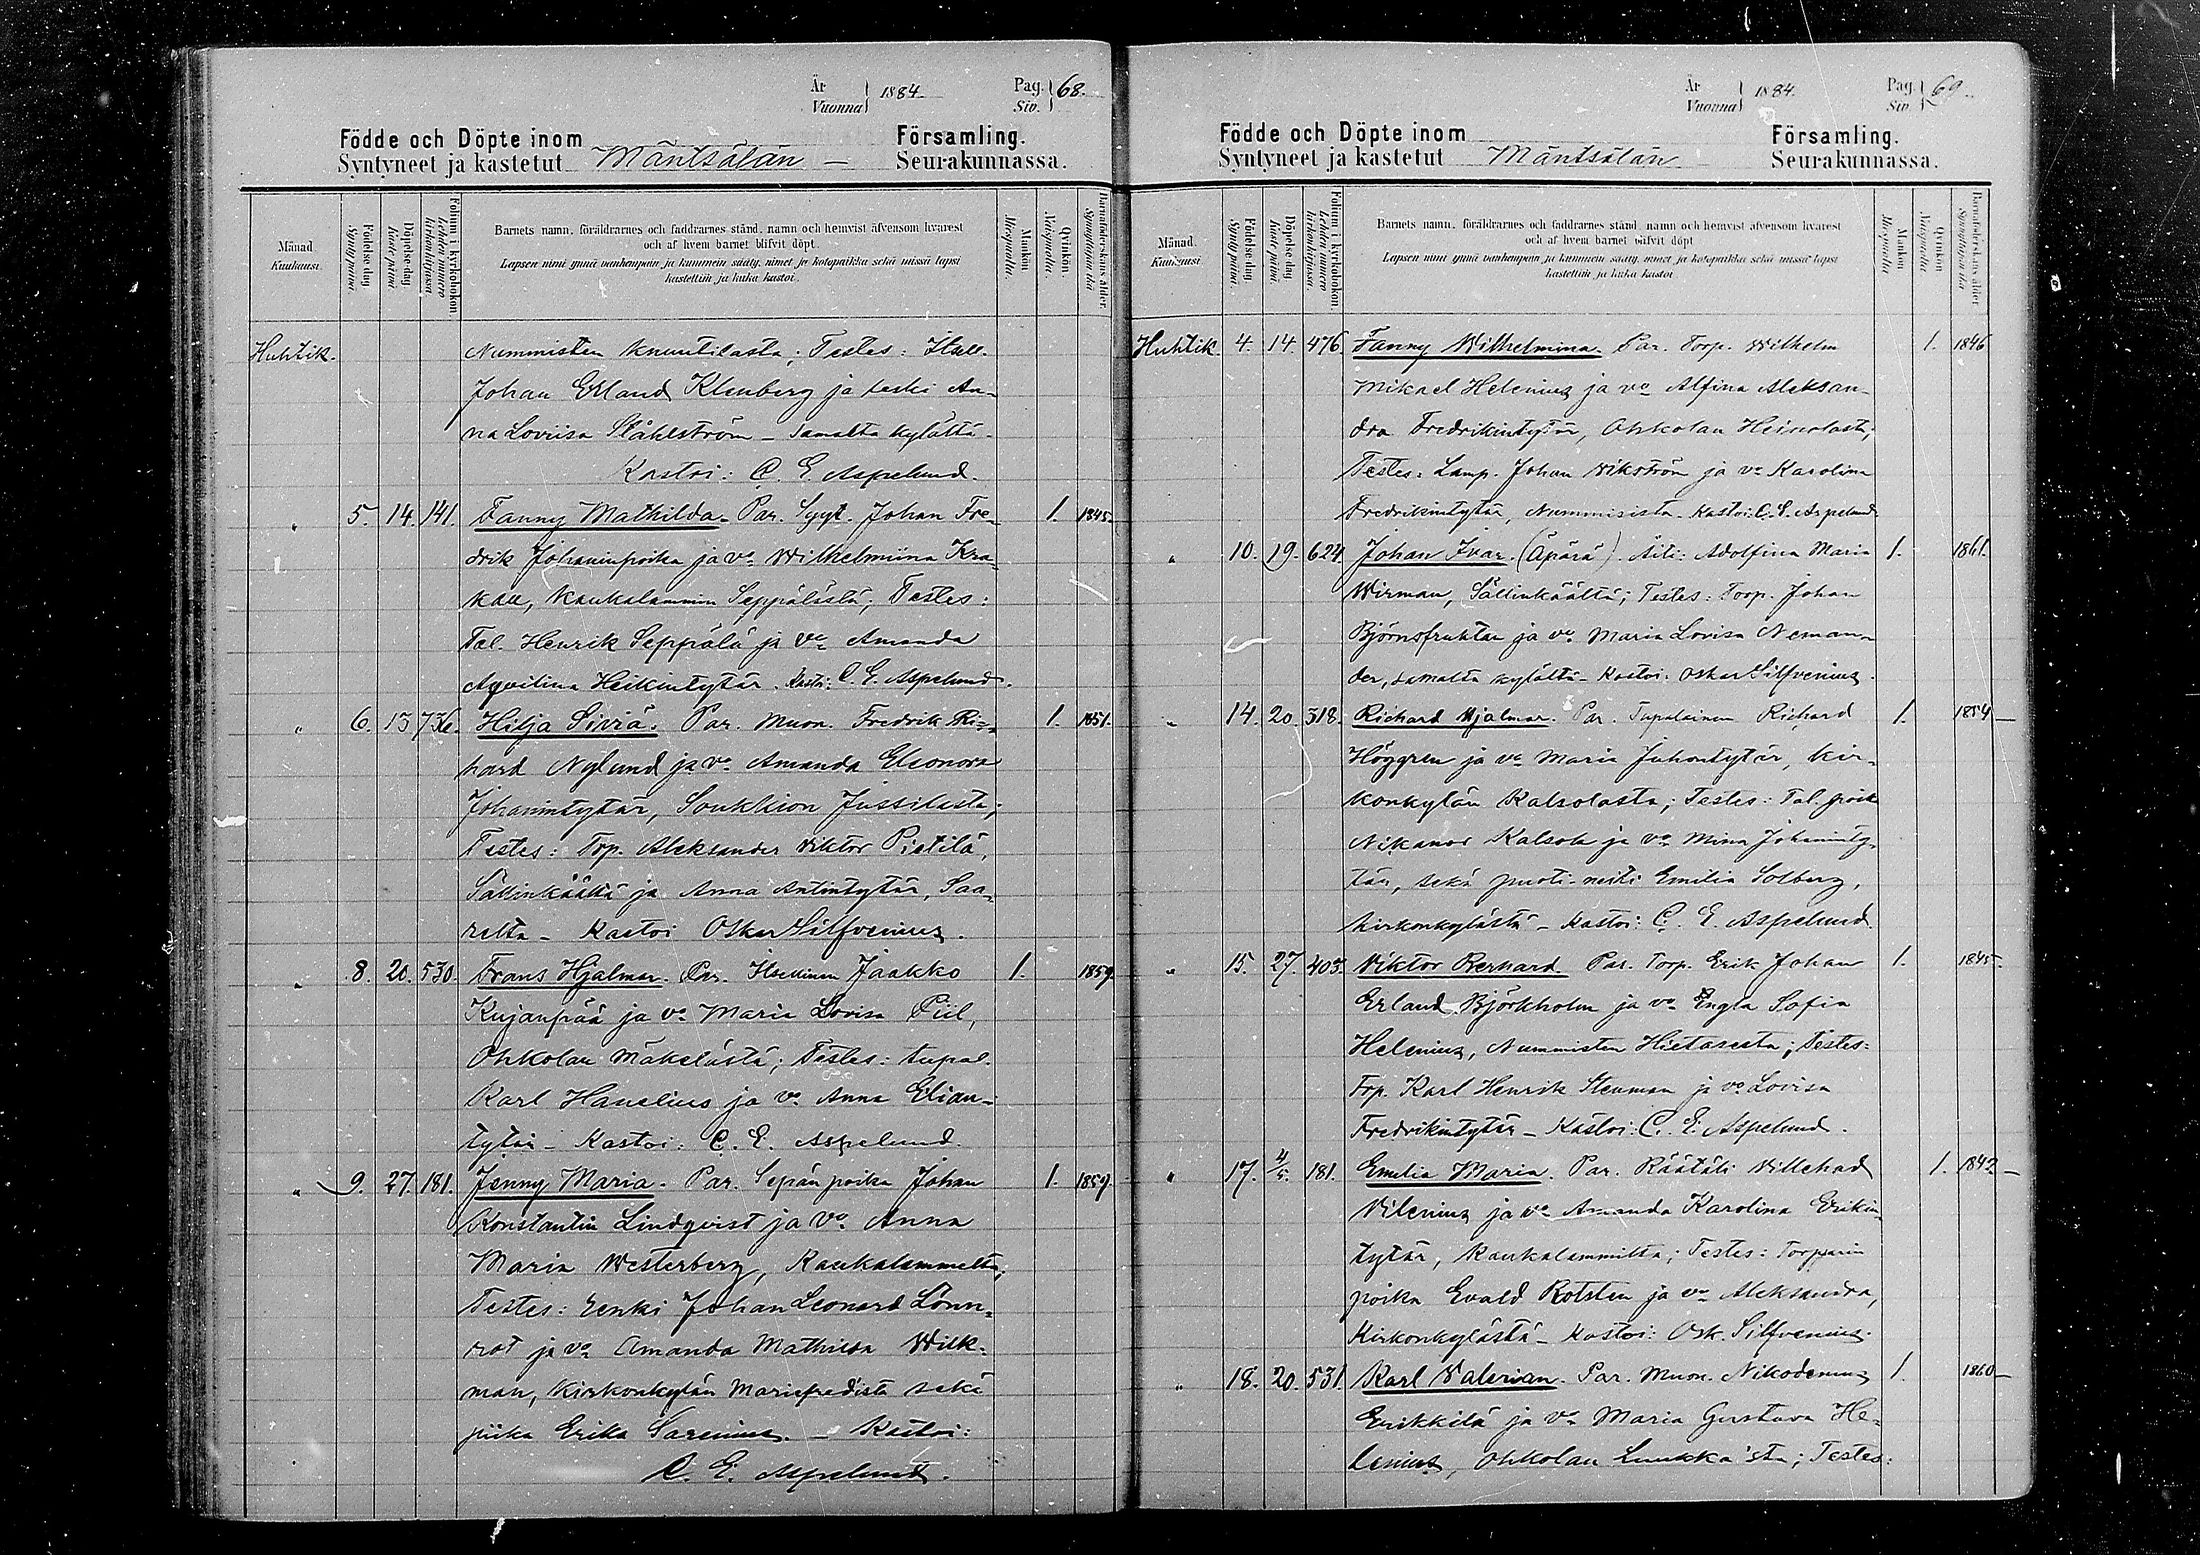 År
Vuonna } 1884.
Pag.
Siv. } 68.
Födde och Döpte inom
Syntyneet ja kastetut Mäntsälän
Församling.
Seurakunnassa.
Månad.
Kuukausi.
Födelsedag.
Syntypäivä.
Döpelsedag.
Kastepäivä.
Folium i kyrkoboken.
Lehden numero kirkonkirjassa.
Barnets namn, föräldrarnes och faddrarnes stånd, namn och hemvist äfvensom hvarest
och af hvem barnet blifvit döpt.
Lapsen nimi ynnä vanhempain ja kummein sääty, nimet ja kotopaikka sekä missä lapsi
kastettiin ja kuka kastoi.
Mankön.
Miespuolta.
Qvinkön.
Naispuolta.
Barnaföderskans ålder.
Synnyttäjän ikä
Huhtik. Nummisten Knuutilasta; Testes:
Johan Erland Klenberg ja leski An-
na Loviisa Ståhlström - samalta kylältä.
Kastoi: C. E. Aspelund.
" 5. 14. 141. Fanny Mathilda. Par. Syyt. Johan Fre- 1. 1845.
drik Johaninpoika ja vo Wilhelmiina Kra-
kau, Kaukalammin Seppälästä; Testes:
Tal. Henrik Seppälä ja vo Amanda
Aqvilina Heikintytär. Kastoi: C. E. Aspelund.
" 6. 13 736. Hilja Siviä. Par. Muon. Fredrik Ri- 1. 1851.
hard Nylund ja vo Amanda Eleonora
Johanintytär, Soukkion Jussilasta;
Testes: Trp. Aleksander Viktor Pietilä,
Sälinkäältä ja Anna Antintytär, Saa-
relta - Kastoi Oskar Silfvenius.
" 8. 20. 530. Frans Hjalmar. Par. Itsellinen Jaakko 1. 1859.
Kujanpää ja vo Maria Lovisa Piil,
Ohkolan Mäkelästä; Testes: tupal.
Karl Hanelius ja vo Anna Elian-
tytär - Kastoi: C. E. Aspelund.
" 9. 27. 181. Jenny Maria. Par. Sepän poika Johan 1. 1859.
Konstantin Lindqvist ja vo Anna
Maria Westerberg, Kaukalammelta;
Testes: renki Johan Leonard Lönn-
rot ja vo Amanda Mathilda Wilk-
man, Kirkonkylän Mariefred'istä sekä
piika Erika Sarenius. - Kastoi:
C. E. Aspelund.
År
Vuonna } 1884.
Pag.
Siv. } 69.
Födde och Döpte inom
Syntyneet ja kastetut Mäntsälän
Församling.
Seurakunnassa.
Månad.
Kuukausi.
Födelsedag.
Syntypäivä.
Döpelsedag.
Kastepäivä.
Folium i kyrkoboken.
Lehden numero kirkonkirjassa.
Barnets namn, föräldrarnes och faddrarnes stånd, namn och hemvist äfvensom hvarest
och af hvem barnet blifvit döpt.
Lapsen nimi ynnä vanhempain ja kummein sääty, nimet ja kotopaikka sekä missä lapsi
kastettiin ja kuka kastoi.
Mankön.
Miespuolta.
Qvinkön.
Naispuolta.
Barnaföderskans ålder.
Synnyttäjän ikä
Huhtik. 4. 14. 476. Fanny Wilhelmina. Par. Torp. Wilhelm 1. 1846
Mikael Helenius ja vo Alfina Aleksan-
dra Fredrikintytär, Ohkolan Heinolasta;
Testes: Lamp. Johan Vikström ja vo Karolina
Fredrikintytär, Nummisista. Kastoi: C. E. Aspelund
" 10. 19. 624. Johan Ivar. (Äpärä). Äiti: Adolfina Maria 1. 1861.
Wirman, Sälinkäältä; Testes: Torp. Johan
Björnsfruktan ja vo Maria Lovisa Neman-
der, samalta kylältä - Kastoi: Oskar Silfvenius.
" 14. 20. 318. Richard Hjalmar. Par. Tupalainen Richard 1. 1854
Höggren ja vo Maria Juhontytär, Kir-
konkylän Kalsolasta; Testes: Tal. poika
Nikanor Kalsola ja vo Mina Johaninty-
tär, sekä puoti-neiti Emilia Solberg,
Kirkonkylästä - Kastoi: C. E. Aspelund.
" 15. 27. 403. Viktor Bernard. Par. Torp. Erik Johan 1. 1845
Erland Björkholm ja vo Engla Sofia
Helenius, Nummisten Hietasesta; Testes:
Trp. Karl Henrik Stenman ja vo Lovisa
Fredrikintytär - Kastoi: C. E. Aspelund.
" 17. 4/5. 181. Emilia Maria. Par. Räätäli Villehad 1. 1842
Vilenius ja vo Amanda Karolina Erikin-
tytär, Kaukalammilta; Testes: Torpparin
poika Evald Rotsten ja vo Aleksandra,
Kirkonkylästä - Kastoi: Osk. Silfvenius.
" 18. 20. 531. Karl Valerian. Par. Muon. Nikodemus 1. 1860
Erikkilä ja vo Maria Gustava He-
lenius, Ohkolan Luukka'sta; Testes: